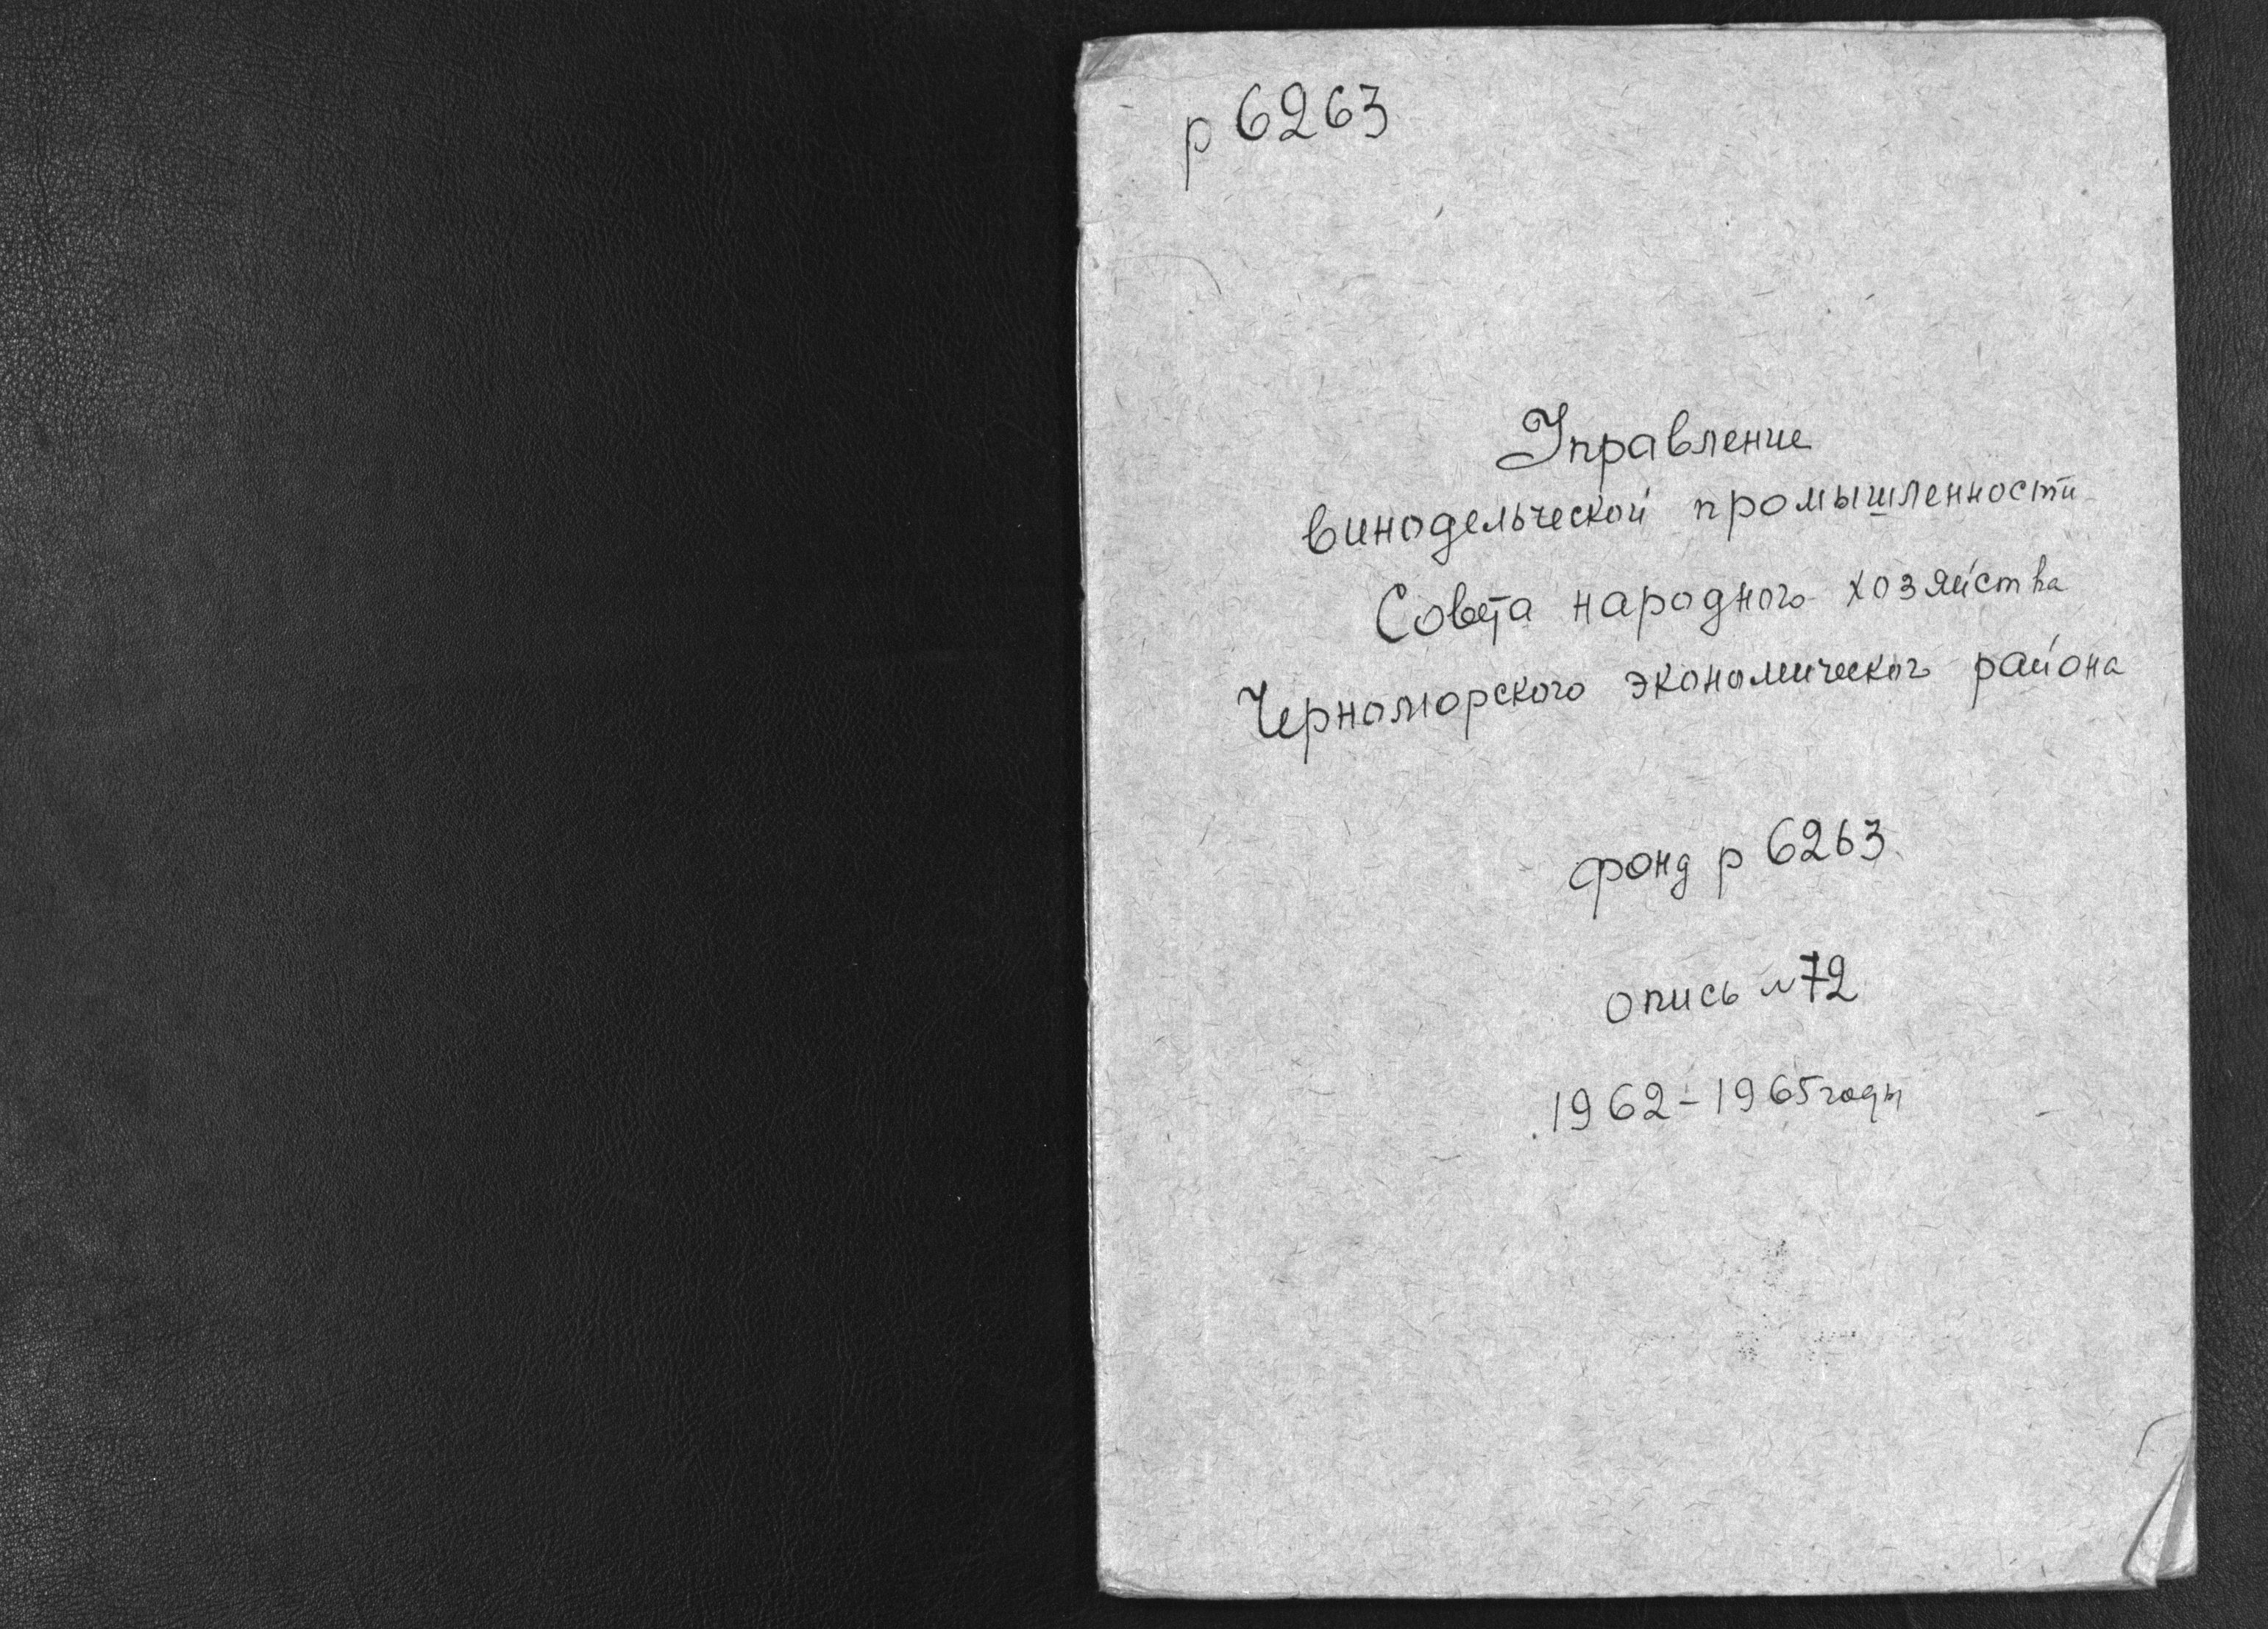 р 6263
Управление
винодельческой промышленности
Совета народного хозяйства
Черноморского экономического района
фонд р 6263
опись № 72
1962-1965 годы